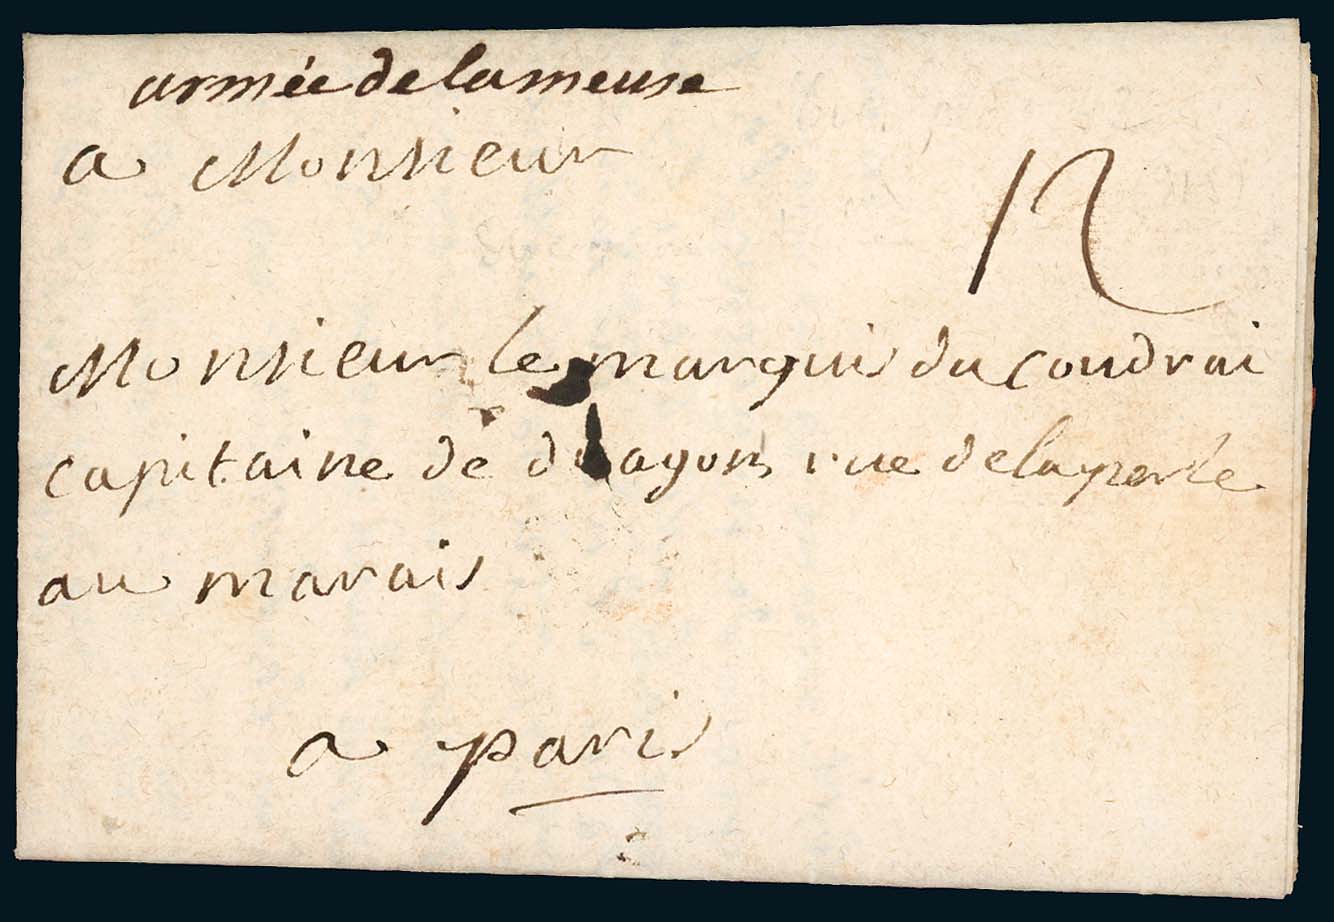 armée de la meuse
a Monsieur
12
Monsieur le marquis du coudrai
capitaine de dragons rue de la perle
au marais
a paris